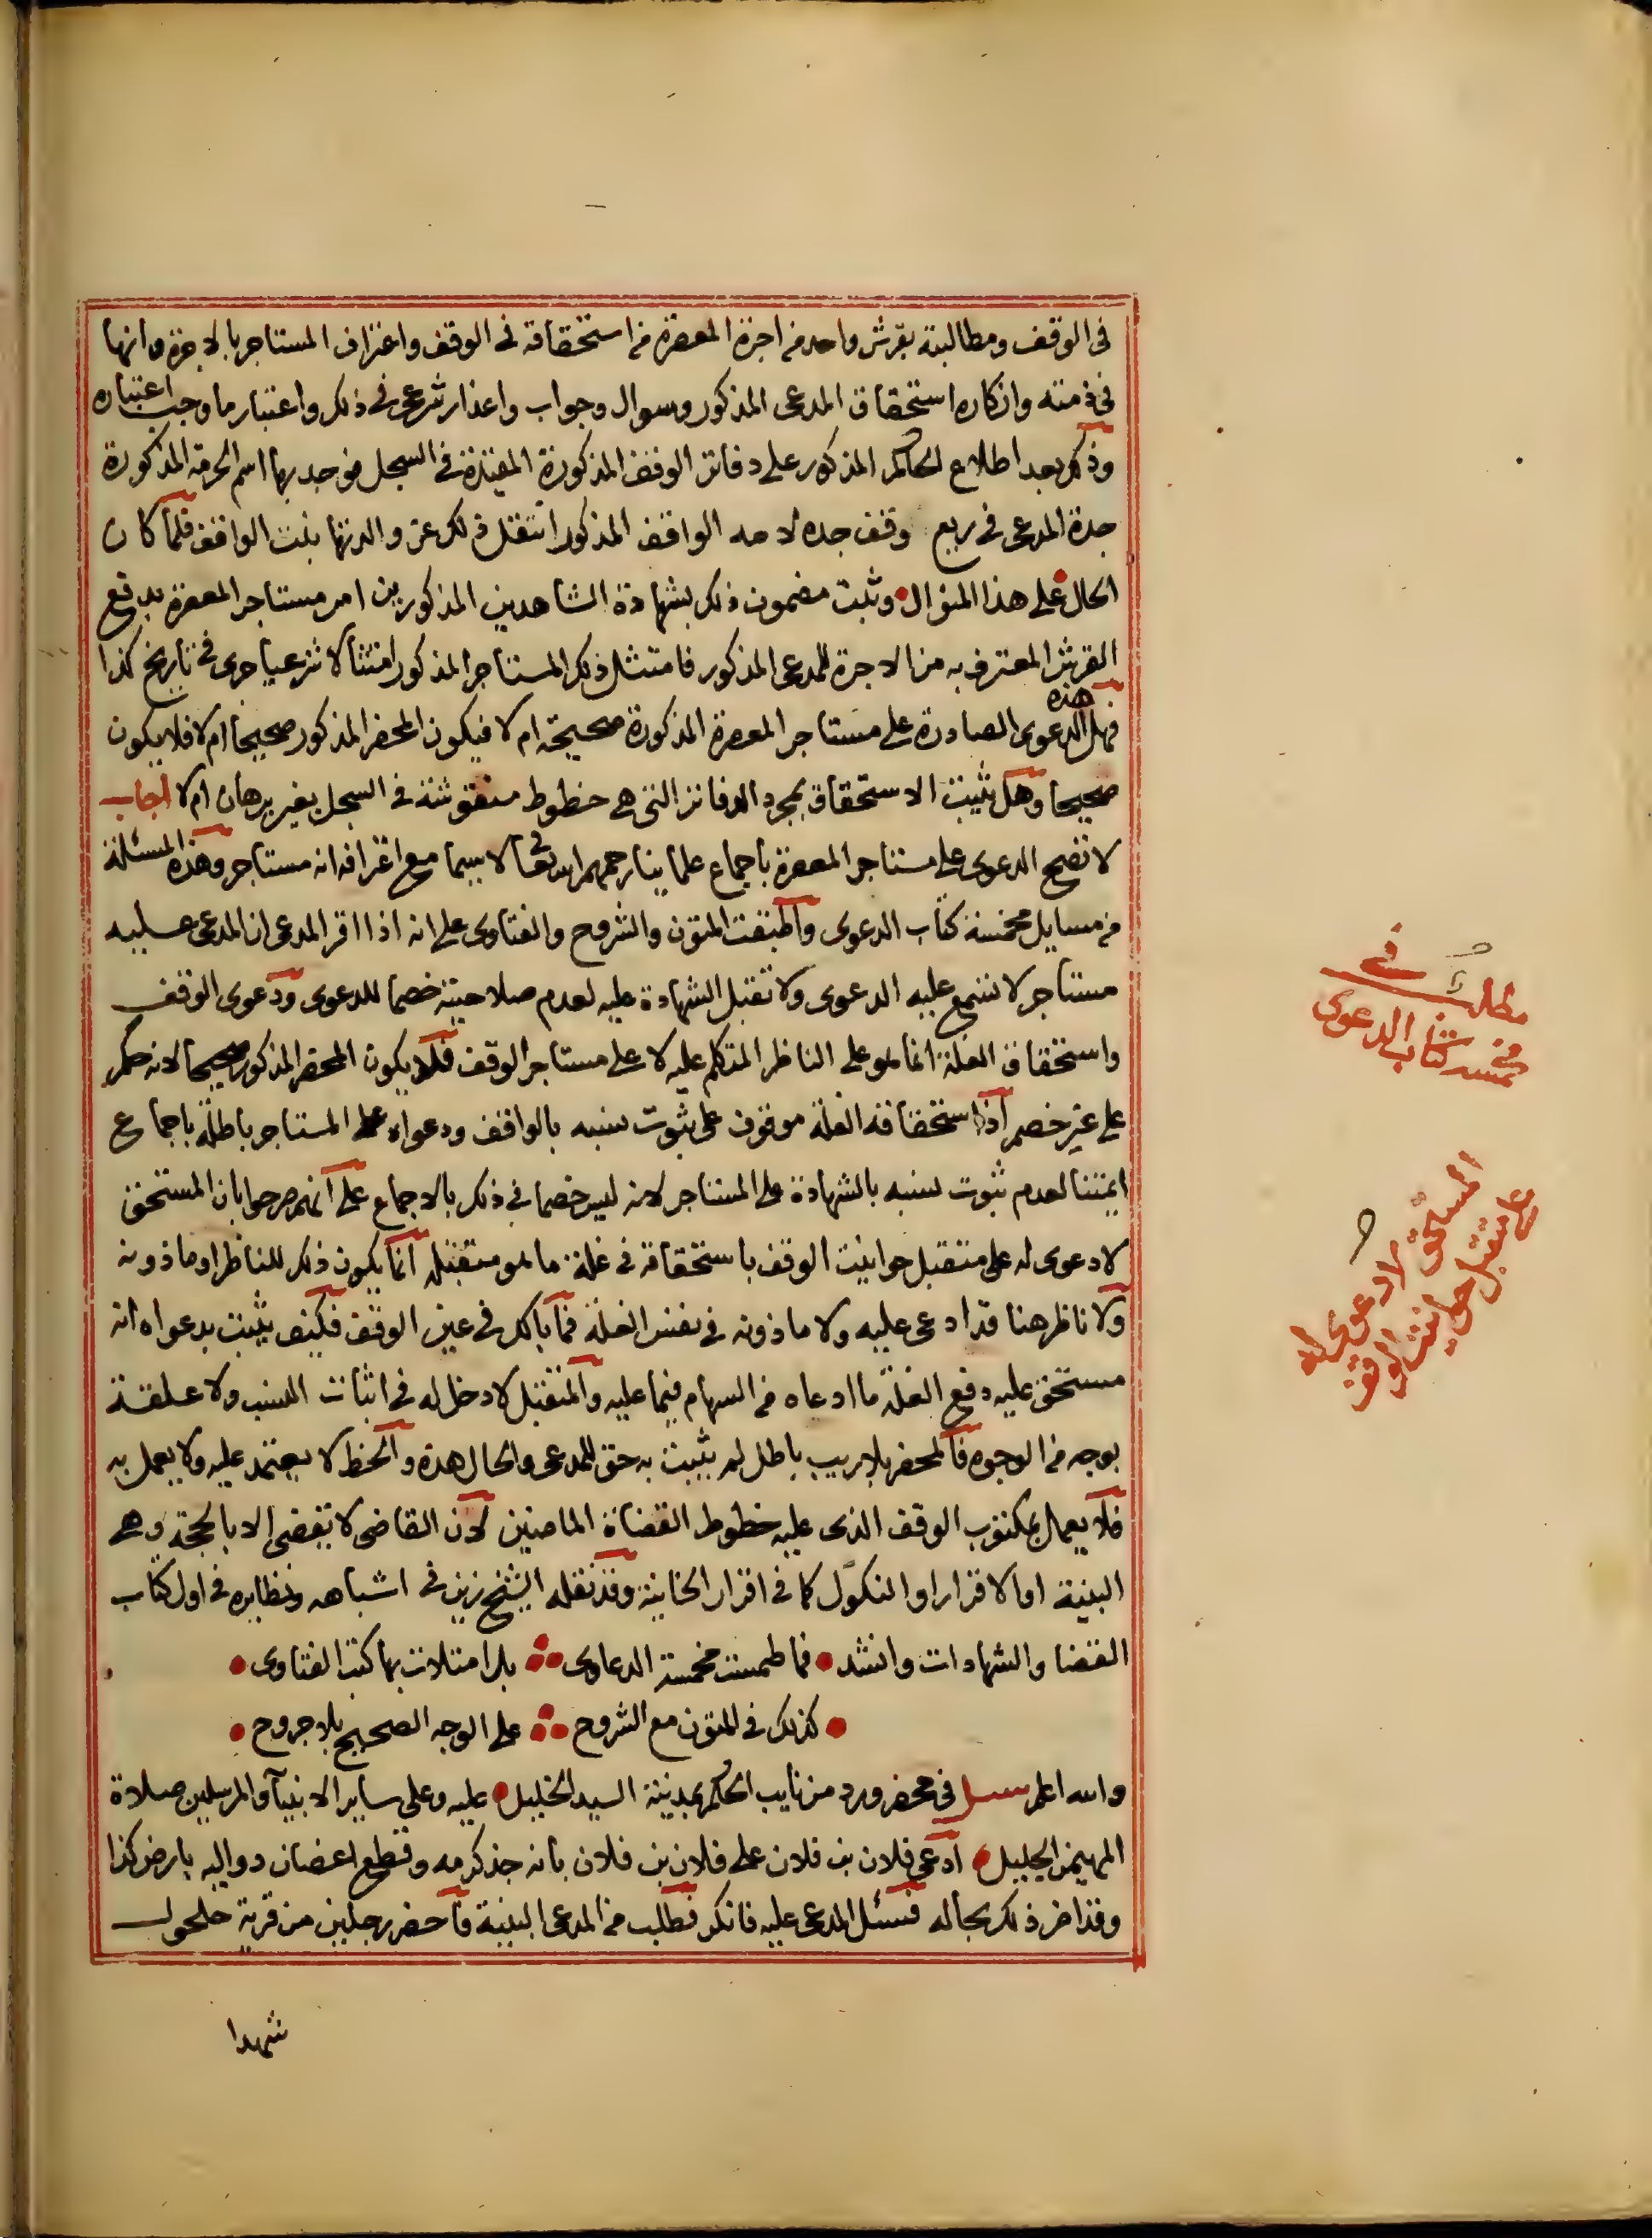 في الوقف ومطالبته بقرش واحد من اجرة المعصرة من استحقاقه في الوقف واعتراف المستاجر بالاجرة وانها
في ذمته وانكاره استحقاق المدعى المذكور وسوال وجواب واعذار شرعي في ذلك واعتبار ما وجب اعتباره
وذكر بعد اطلاع الحاكم المذكور على دفاتر الوقف المذكورة المقيدة في السجل فوجد بها اسم الحرمة المذكورة
جدة المدعى في ربع وقف جده لامه الواقف المذكور انتقل ذلك عن والدتها بنت الواقف فلما كان
الحال على هذا المنوال وثبت مضمون ذلك بشهادة الشاهدين المذكورين امر مستاجر المعصرة بدفع
القرش المعترف به من الاجرة للمدعى المذكور فامتثل ذلك المستاجر المذكور امتثالا شرعيا جرى في تاريخ كذا
فهل هذه الدعوى الصادرة على مستاجر المعصرة المذكورة صحيحة ام لا فيكون المحضر المذكور صحيحا ام لا فلا يكون
صحيحا وهل يثبت الاستحقاق بمجرد الدفاتر التي هي خطوط منقوشة في السجل بغير برهان ام لا اجاب
لا تصح الدعوى على مستاجر المعصرة باجماع علماينا رحمهم الله تعالى لا سيما مع اعترافه انه مستاجر وهذه المسئلة
من مسايل مخمسة كتاب الدعوى واطبقت المتون والشروح والفتاوى على انه اذا اقر المدعى ان المدعى عليه
مستاجر لا تسمع عليه الدعوى ولا تقبل الشهادة عليه لعدم صلاحيته خصما للدعوى ودعوى الوقف
واستحقاق الغلة انما هو على الناظر المتكلم عليه لا على مستاجر الوقف فلا يكون المحضر المذكور صحيحا لانه حكم
على غير خصم اذ استحقاقه الغلة موقوف على ثبوت نسبه بالواقف ودعواه على المستاجر باطلة باجماع
ايمتنا لعدم ثبوت نسبه بالشهادة على المستاجر لانه ليس خصما في ذلك بالاجماع على انهم صرحوا بان المستحق
لا دعوى له على متقبل حوانيت الوقف باستحقاقه في غلة ما هو متقبله انما يكون ذلك للناظر او ماذونه
ولا ناظر هنا قد ادعى عليه ولا ماذونه في نفس الغلة فما بالك في عين الوقف فكيف يثبت بدعواه انه
مستحق عليه دفع الغلة ما ادعاه من السهام فيما عليه والمتقبل لا دخل له في اثبات النسب ولا علقة
بوجه من الوجوه فالمحضر بلا ريب باطل لم يثبت به حق للمدعى والحال هذه والخط لا يعتمد عليه ولا يعمل به
فلا يعمل بمكتوب الوقف الذى عليه خطوط القضاة الماضين لان القاضى لا يقضى الا بالحجة وهى
البينة او الاقرار او النكول كما في اقرار الخانية وقد نقله الشيخ زين في اشباهه ونظايره في اول كتاب
القضا والشهادات وانشد • فما طمست مخمسة الدعاوى بل امتلات بها كتب الفتاوى •
• كذلك في المتون مع الشروح على الوجه الصحيح بلا جروح •
والله اعلم سئل في محضر ورد من نايب الحكم بمدينة السيد الخليل عليه وعلى ساير الانبيآ والمرسلين صلاة
المهيمن الجليل ادعى فلان بن فلان على فلان بن فلان بانه جذ كرمه وقطع اغصان دواليه بارض كذا
وقد اضر ذلك بحاله فسئل المدعى عليه فانكر فطلب من المدعى البينة فاحضر رجلين من قرية حلحول
شهدا
مطلب في
مخمسة كتاب الدعوى
المستحق لا دعوى له
على متقبل حوانيت الوقف